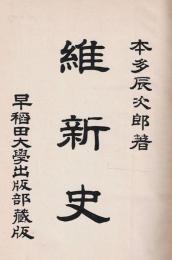 本多辰次郎著
維新史
早稻田大學出版部藏版